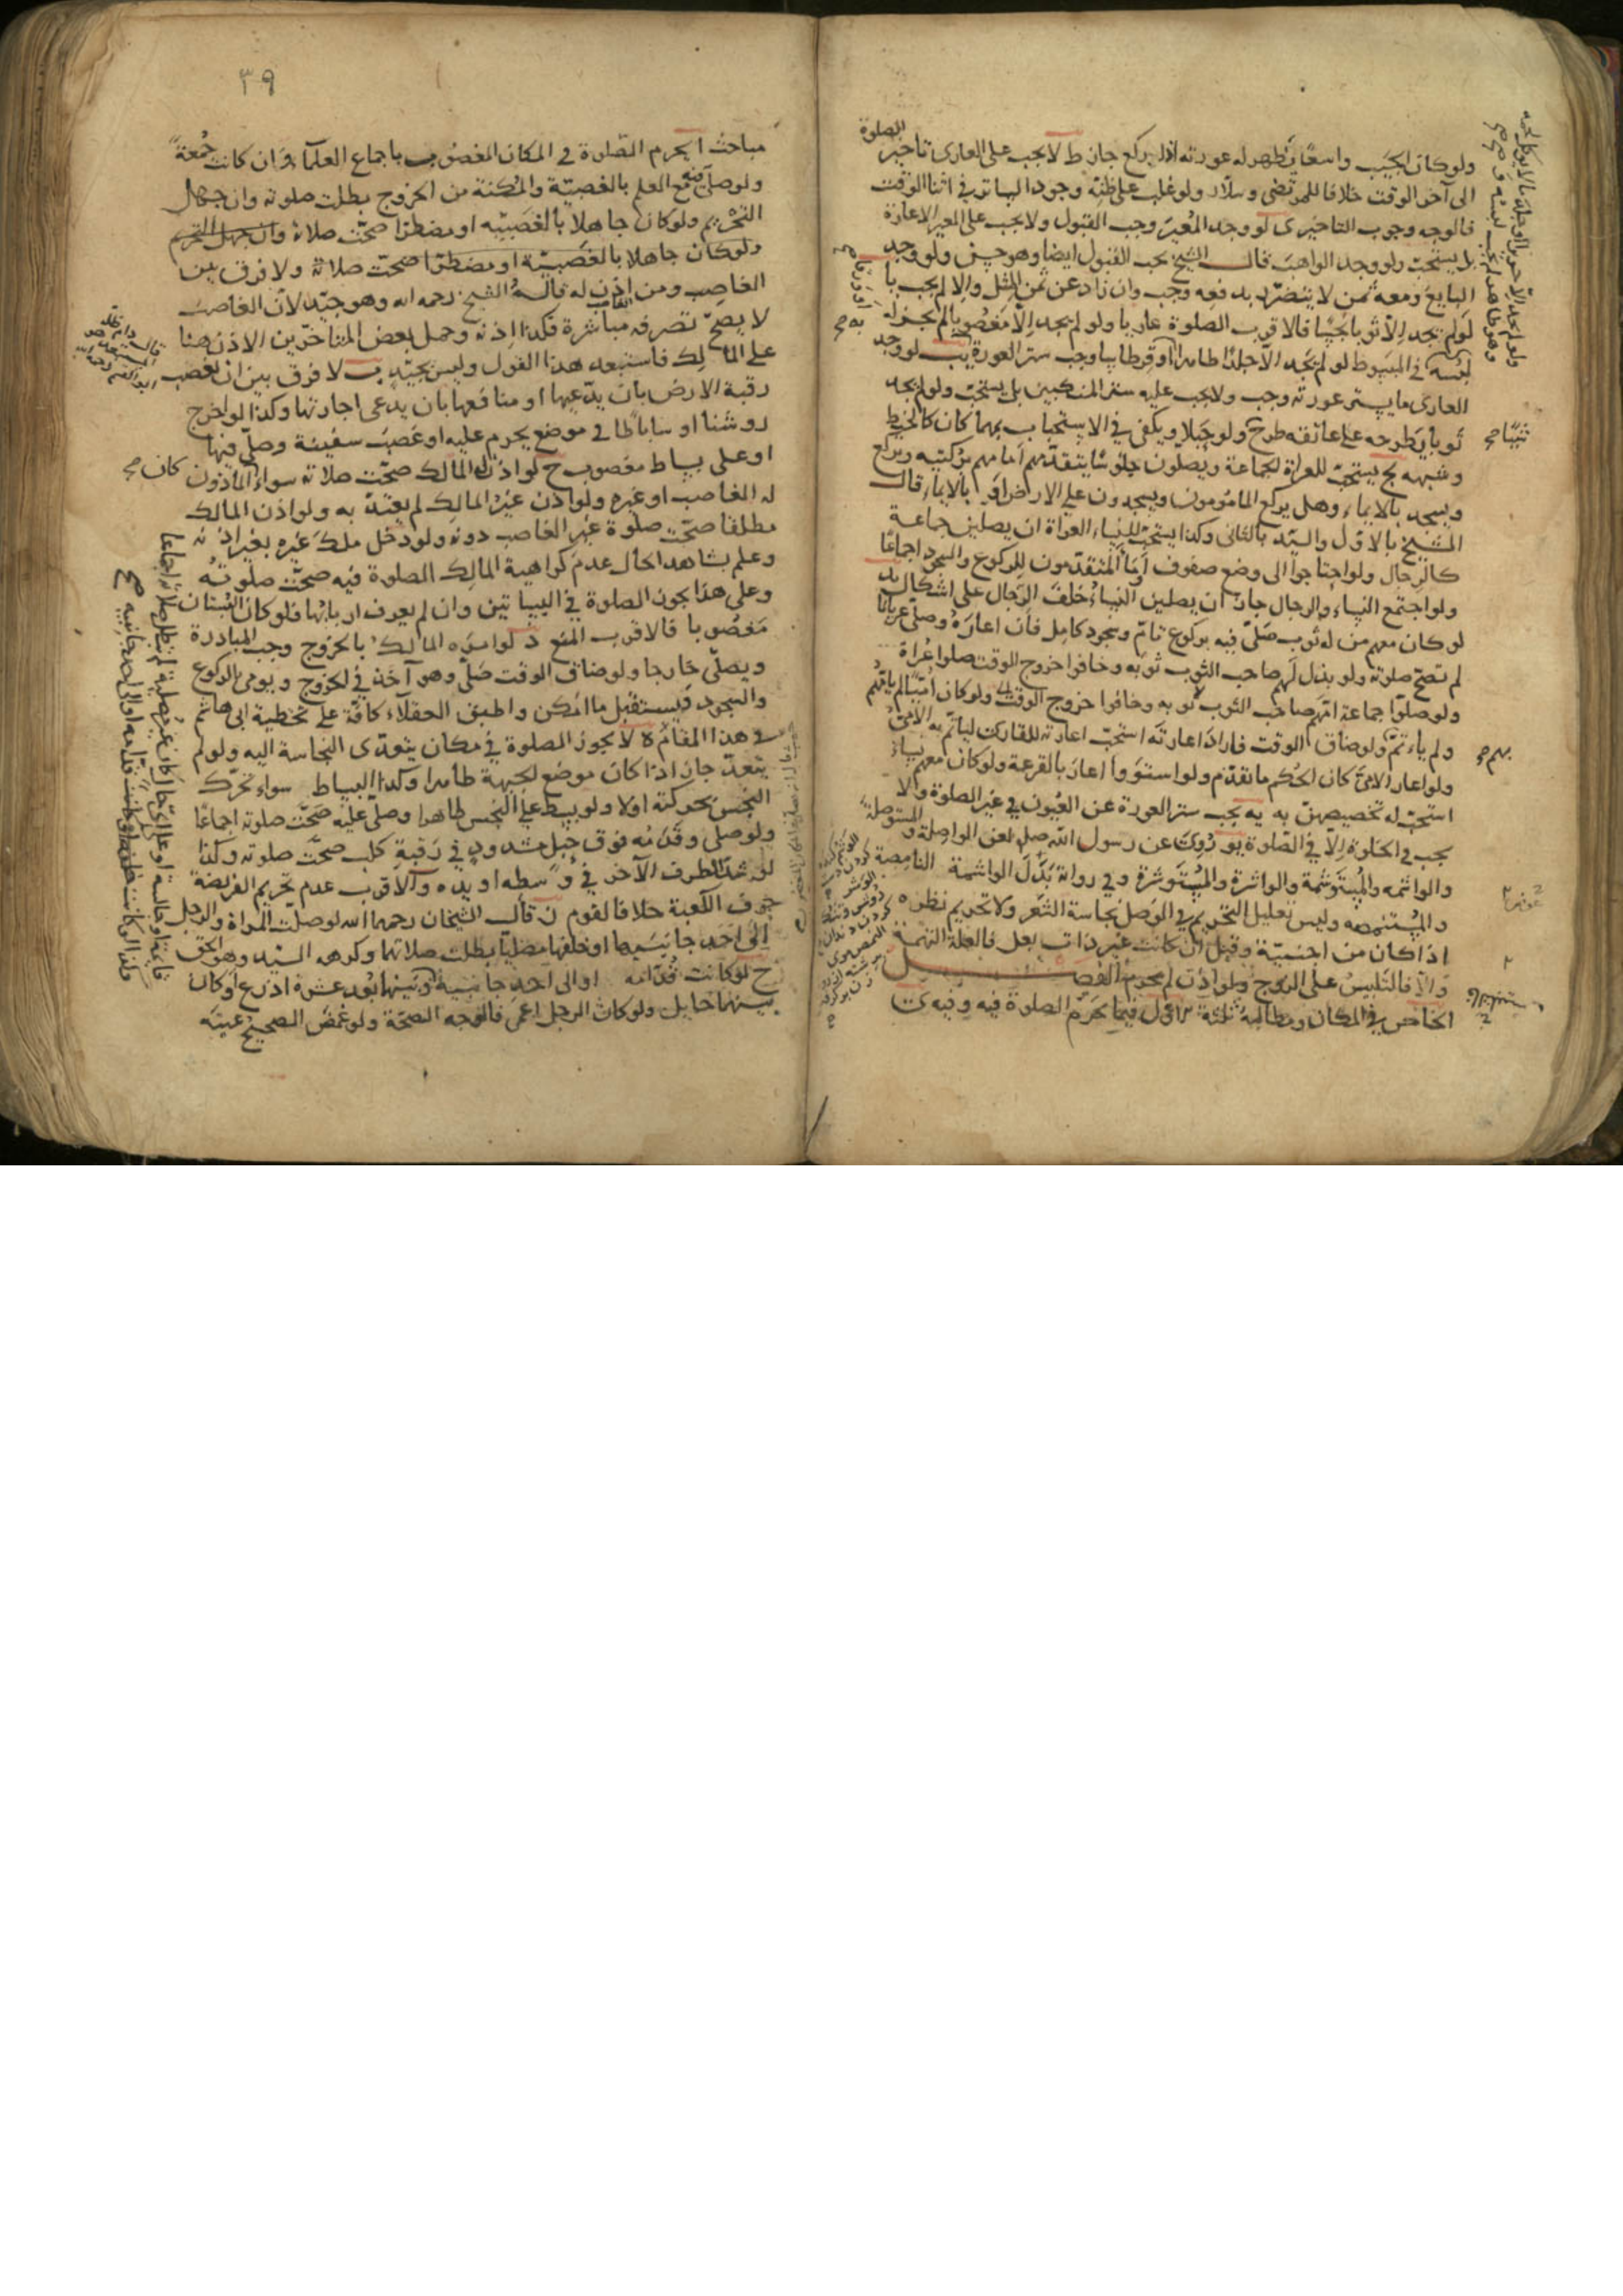 ولو كان الجيب واسعا يظهر له عورته اذا ركع جاز ط لا يجب على العارى تاخير الصلوة
الى آخر الوقت خلافا للمرتضى وسلار ولو غلب على ظنه وجود الساتر في اثنا الوقت
فالوجه وجوب التاخير ى لو وجد المعير وجب القبول ولا يجب على المعير الاعارة
بل يستحب ولو وجد الواهب قال الشيخ يجب القبول ايضا وهو حسن ولو وجد
البايع ومعه ثمن لا يتضرر بدفعه وجب وان زاد عن ثمن المثل والا لم يجب يا
لو لم يجد الا ثوبا نجسا فالاقرب الصلوة عاريا ولو لم يجد الا مغصوبا لم يجز له
لبسه في المبسوط لو لم يجد الا جلدا طاهرا او قرطاسا وجب ستر العورة يب لو وجد
العارى ما يستر عورته وجب ولا يجب عليه ستر المنكبين بل يستحب ولو لم يجد
ثوبا يطرحه على عاتقه طرح ولو حبلا ويكفى في الاستحباب مهما كان كالخيط
وشبهه يج يستحب للعراة الجماعة ويصلون جلوسا يتقدمهم امامهم بركبتيه ويركع
ويسجد بالايماء وهل يركع المامومون ويسجدون على الارض او بالايماء قال
الشيخ بالاول والسيد بالثانى وكذا يستحب للنساء العراة ان يصلين جماعة
كالرجال ولو احتاجوا الى وضع صفوف اما المتقدمون للركوع والسجود اجماعا
ولو اجتمع النساء والرجال جاز ان يصلين النساء خلف الرجال على اشكال يد
لو كان معهم من له ثوب صلى فيه بركوع تام وسجود كامل فان اعاره وصلى عريانا
لم تصح صلوته ولو بذل لهم صاحب الثوب ثوبه وخافوا خروج الوقت صلوا عراة
ولو صلوا جماعة امهم صاحب الثوب ثوبه وخافوا خروج الوقت ولو كان اميا لم ياتمهم
ولم ياءتم ولو ضاق الوقت فاراد اعارته استحب اعارته للقارى لياتم به الامى
ولو اعار الامى كان الحكم ما تقدم ولو استووا اعار بالقرعة ولو كان معهم نساء
استحب له تخصيصهن به يه يجب ستر العورة عن العيون في غير الصلوة والا
يجب في الخلوة الا في الصلوة يو روى عن رسول الله صلى لعن الواصلة والمستوصلة
والواشمة والمستوشمة والواشرة والمستوشرة وفي رواية بدل الواشمة النامصة
والمستنمصه وليس تعليل التحريم في الوصل نجاسة الشعر ولا تحريم نظره
اذا كان من اجنبية وقيل ان كانت غير ذات بعل فالعلة التهمة
والا فالتلبيس على الزوج ولو اذن لم يحرم الفصل
الخامس في المكان ومطالبه ثلثة الاول فيما يحرم الصلوة فيه وفيه
٣٩
مباحث ا يحرم الصلوة في المكان المغصوب باجماع العلماء وان كانت جمعة
ولو صلى مع العلم بالغصبية والمكنة من الخروج بطلت صلوته وان جهل
التحريم ولو كان جاهلا بالغصبيه او مضطرا صحت صلاته وان جهل التحريم
ولو كان جاهلا بالغصبية او مضطرا صحت صلاته ولا فرق بين
الغاصب ومن اذن له قاله الشيخ رحمه الله وهو جيد لان الغاصب
لا يصح تصرفه مباشرة فكذا اذنه وحمل بعض المتاخرين الاذن هنا
على المالك فاستبعد هذا القول وليس بجيد ب لا فرق بين ان يغصب
رقبة الارض بان يدعيها او منافعها بان يدعى اجارتها وكذا لو اخرج
روشنا او ساباطا في موضع يحرم عليه او غصب سفينة وصلى فيها
او على بساط مغصوب ج لو اذن المالك صحت صلاته سواء كان الماذون
له الغاصب او غيره ولو اذن غير المالك لم يعتد به ولو اذن المالك
مطلقا صحت صلوة غير الغاصب دونه ولو دخل ملك غيره بغير اذنه
وعلم بشاهد الحال عدم كراهية المالك الصلوة فيه صحت صلوته
وعلى هذا يجوز الصلوة في البساتين وان لم يعرف اربابها فلو كان البستان
مغصوبا فالاقرب المنع د لو امره المالك بالخروج وجب المبادرة
ويصلى خارجا ولو ضاق الوقت صلى وهو آخذ في الخروج ويومى بالركوع
والسجود فيستقبل ما امكن واطبق العقلاء كافة على تخطية ابى هاشم
في هذا المقام ه لا يجوز الصلوة في مكان يتعدى النجاسة اليه ولو لم
يتعد جاز اذا كان موضع الجبهة طاهرا وكذا البساط سواء تحرك
النجس بحركته اولا ولو بسط على النجس طاهرا وصلى عليه صحت صلوته اجماعا
ولو صلى وقدمه فوق حبل مشدود في رقبة كلب صحت صلوته وكذا
لو شد الطرف الآخر في وسطه او يده و الاقرب عدم تحريم الفريضة
جوف الكعبة خلافا لقوم ز قال الشيخان رحمهما الله لو صلت المراة والرجل
الى احد جانبيها او خلفها مصليا بطلت صلاتهما وكرهه السيد وهو الحق
ح لو كانت قدامه او الى احد جانبيه وبينهما بعد عشرة اذرع او كان
بينهما حايل ولو كان الرجل اعمى فالوجه الصحة ولو غمض الصحيح عينيه